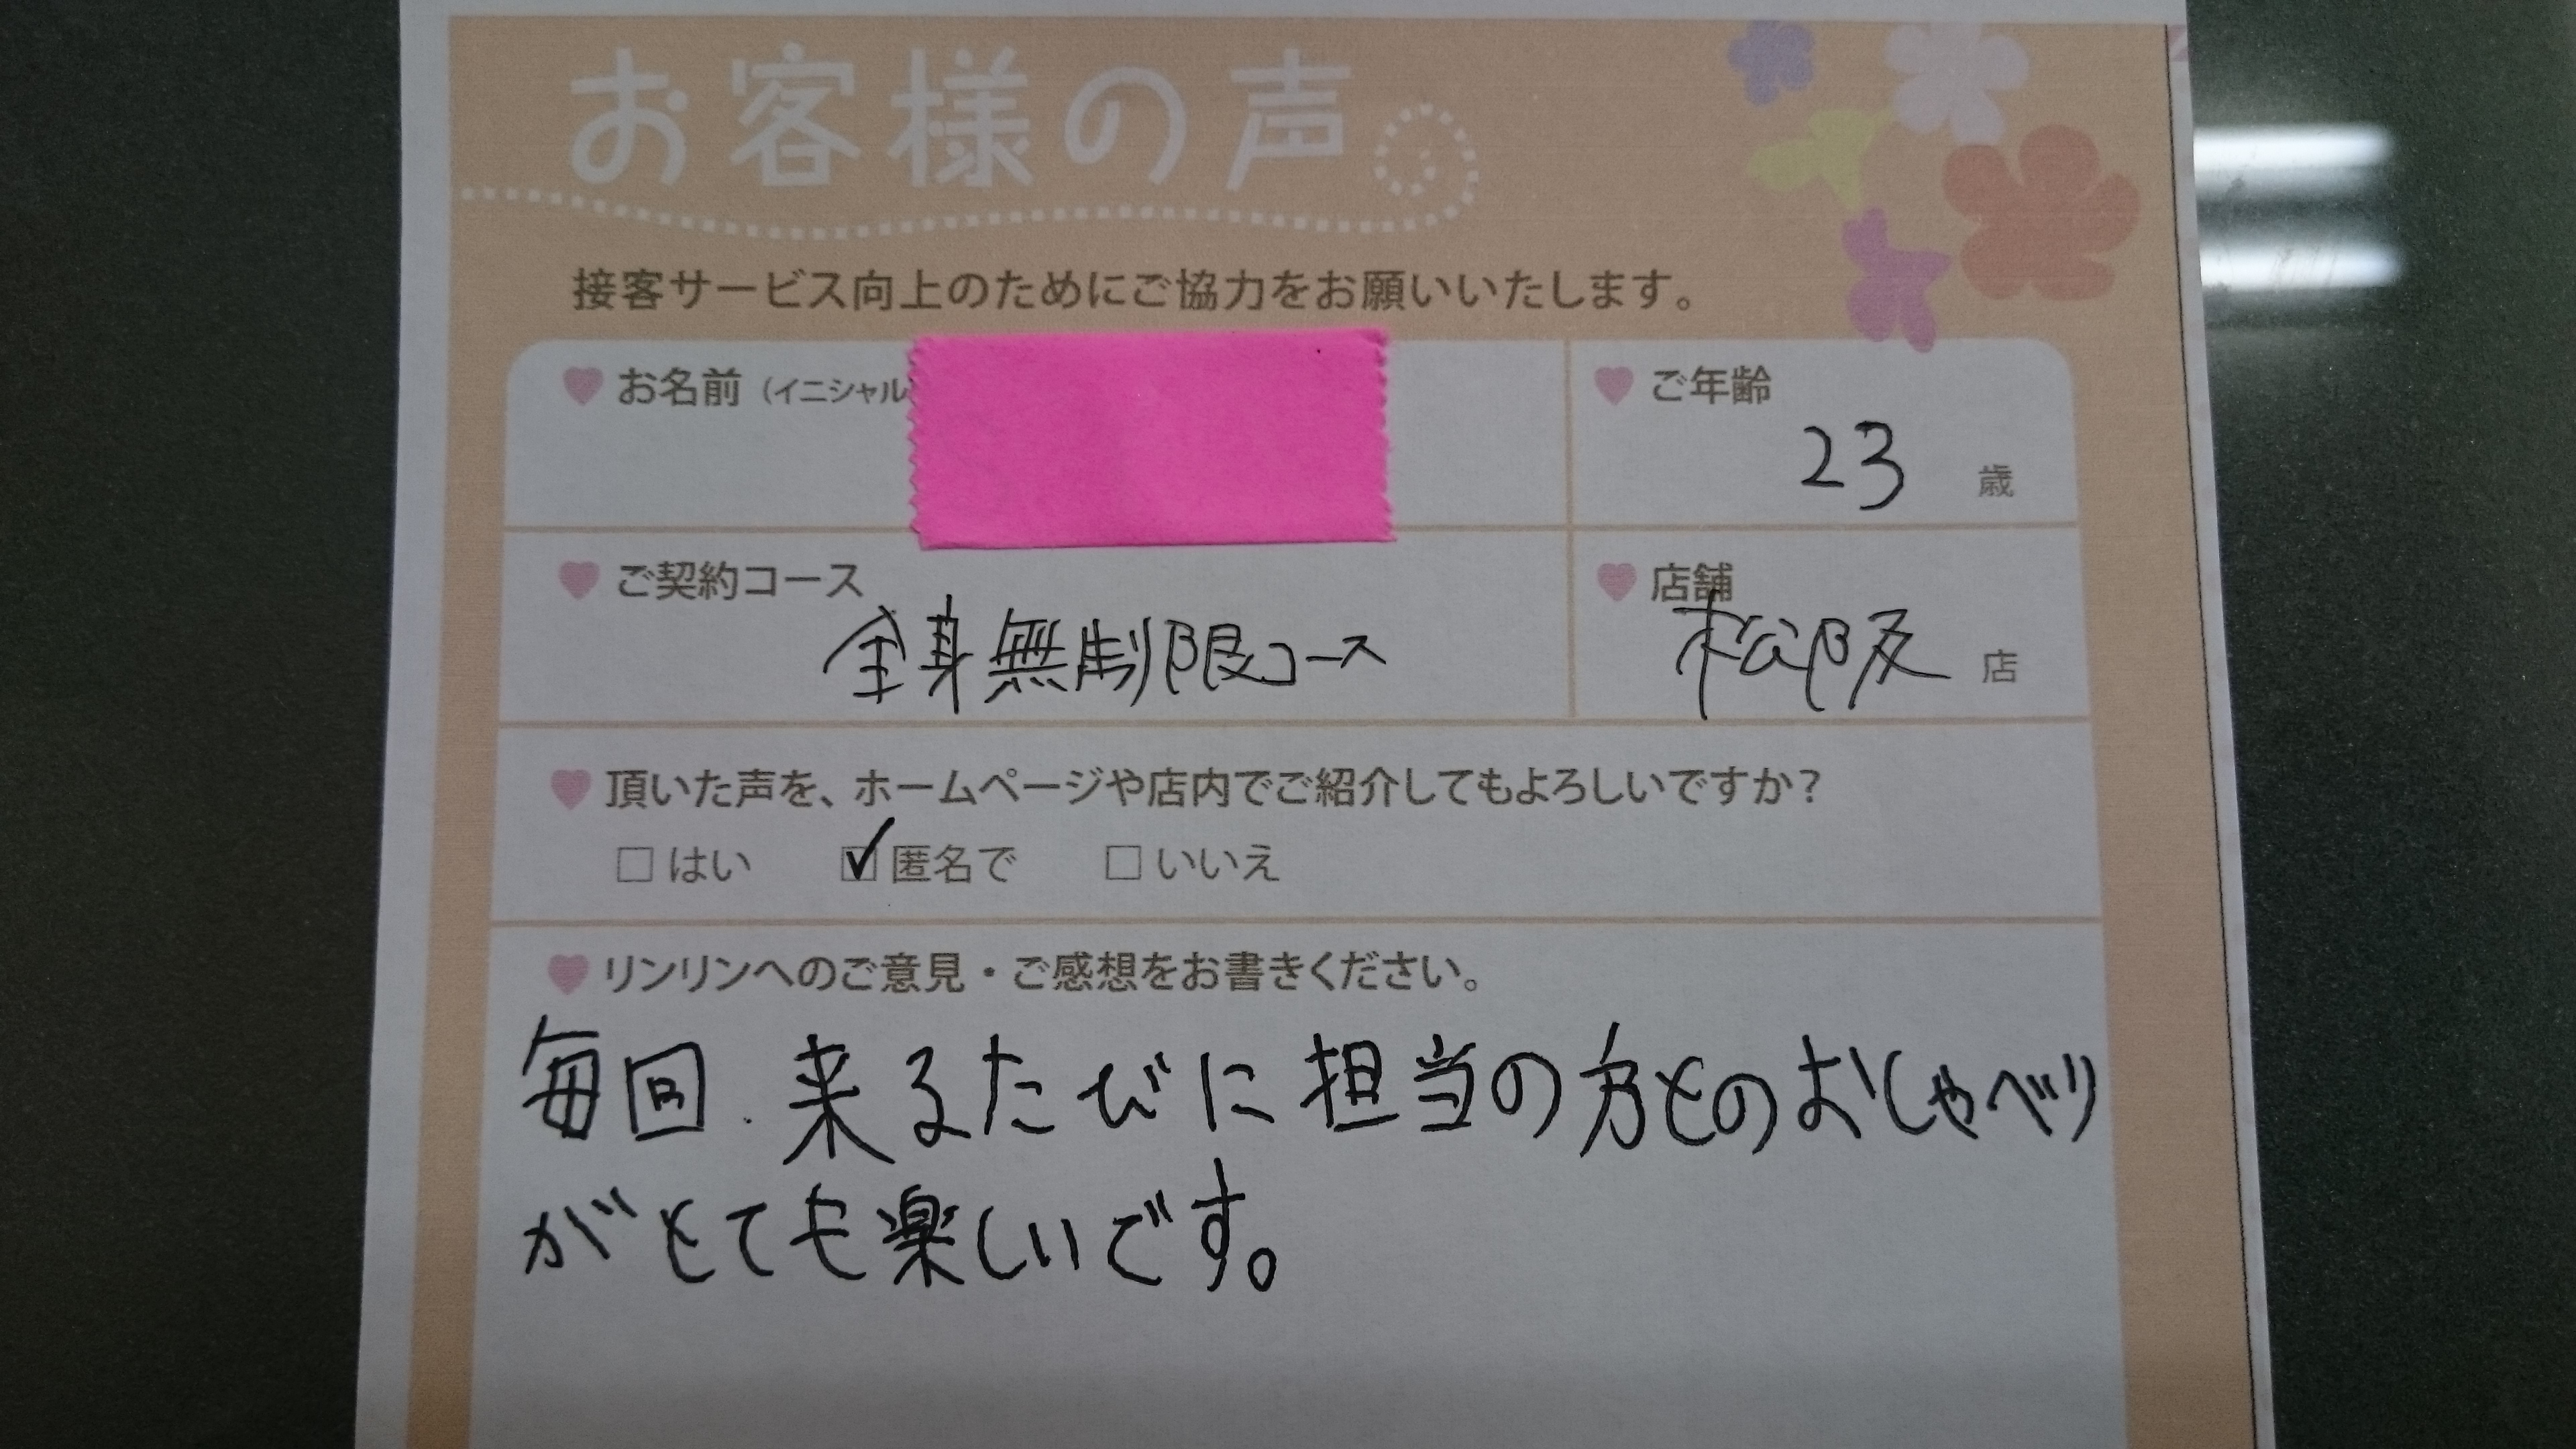 お客様の声
接客サービス向上のためにご協力をお願いいたします。
お名前（イニシャル
ご年齢
23 歳
ご契約コース
全身無制限コース
店舗
松阪 店
頂いた声を、ホームページや店内でご紹介してもよろしいですか？
□ はい ☑ 匿名で □ いいえ
リンリンへのご意見・ご感想をお書きください。
毎回、来るたびに担当の方とのおしゃべり
がとても楽しいです。